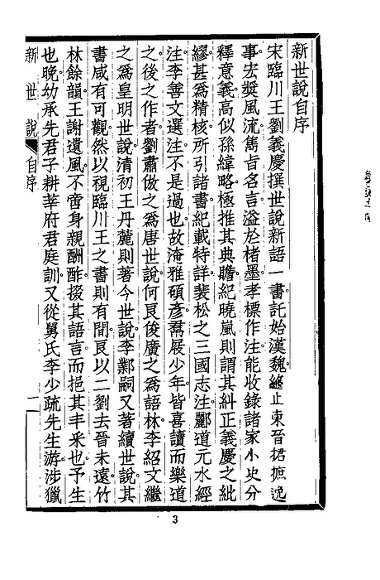 新世說自序
宋臨川王劉義慶撰世說新語一書託始漢魏繼止東晉捃摭逸
事宏獎風流雋旨名言溢於楮墨孝標作注能收錄諸家小史分
釋意義高似孫緯略極推其典贍紀曉嵐則謂其糾正義慶之紕
繆甚爲精核所引諸書紀載特詳裴松之三國志注酈道元水經
注李善文選注不是過也故淹雅碩彥帬屐少年皆喜讀而樂道
之後之作者劉肅倣之爲唐世說何良俊廣之爲語林李紹文繼
之爲皇明世說清初王丹麓則著今世說李鄴嗣又著續世說其
書咸有可觀然以視臨川王之書則有間良以二劉去晉未遠竹
林餘韻王謝遺風不啻身親酬酢掇其語言而挹其丰采也予生
也晚幼承先君子耕莘府君庭訓又從舅氏李少疏先生游涉獵
新世說 自序 一
3